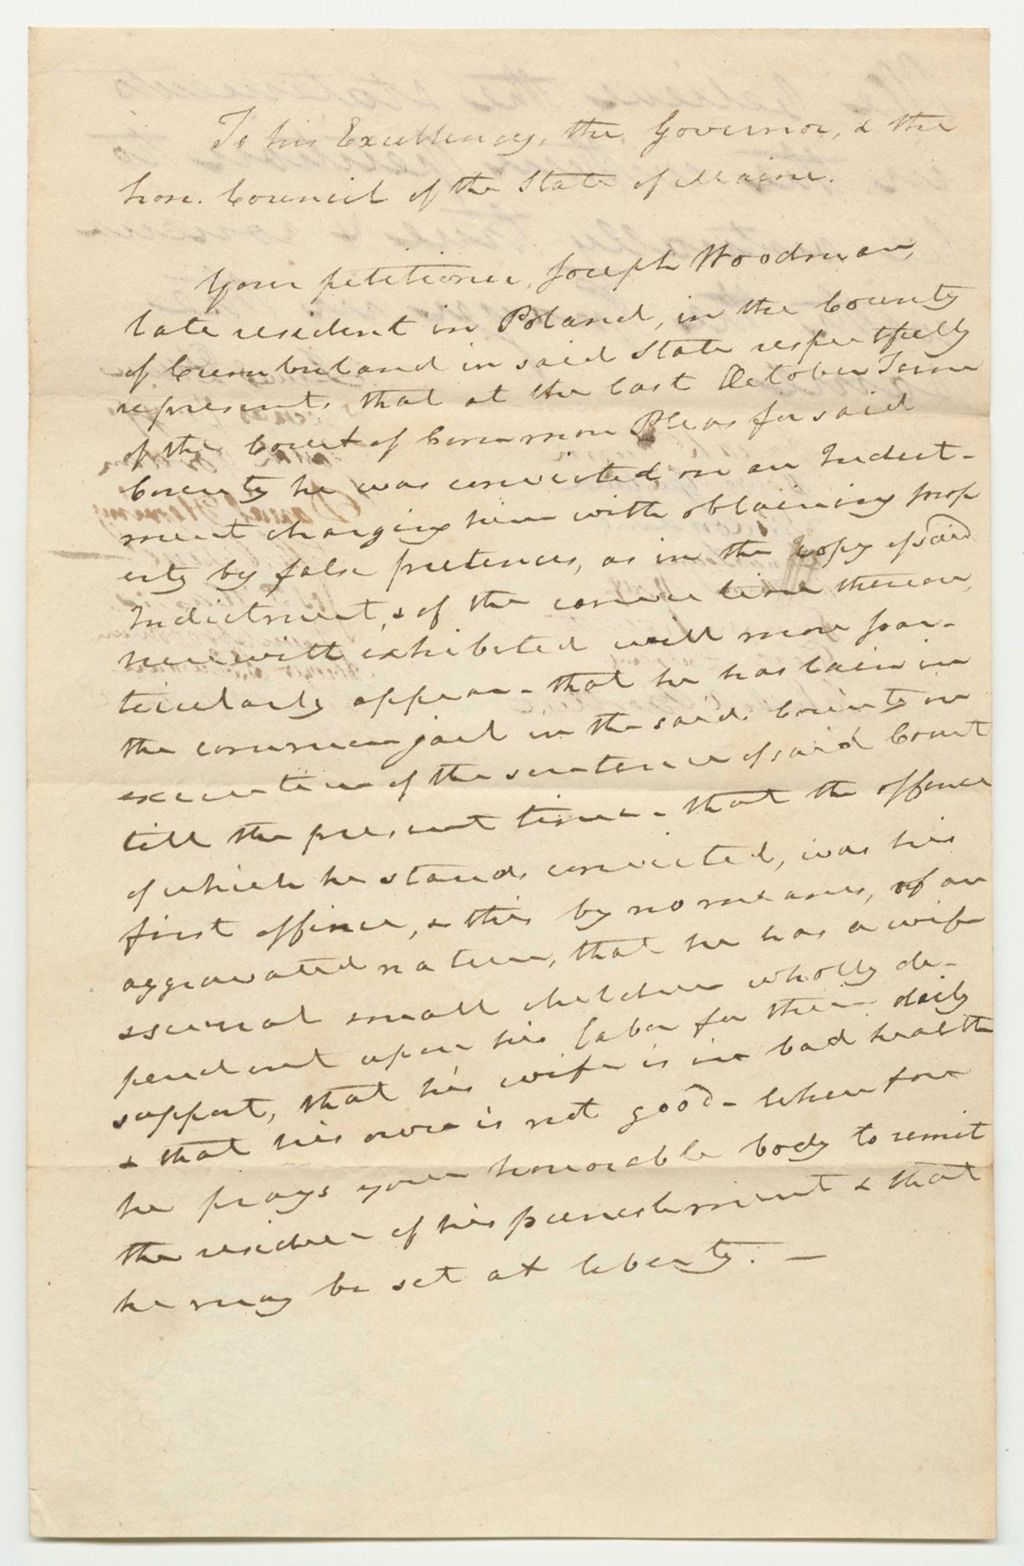 To his Excellency, the Governor, & the
hon. Council of the State of Maine.
Your petitioner, Joseph Woodman,
late resident in Poland, in the County
of Cumberland in said State respectfully
represents, that at the last October Term
of the Court of Common Pleas for said
County he was convicted on an Indict-
ment charging him with obtaining prop
erty by false pretences, as in the copy of said
Indictment, & of the conviction thereon,
herewith exhibited will more par-
ticularly appear - that he has lain in
the common jail in the said County in
execution of the sentence of said Court
till the present time - that the offence
of which he stands convicted, was his
first offence, & this by no means, of an
aggravated nature, that he has a wife
& several small children wholly de-
pendent upon his labor for their daily
support, that his wife is in bad health
& that his own is not good - Wherefore
he prays your honorable body to remit
the residue of his punishment & that
he may be set at liberty. -